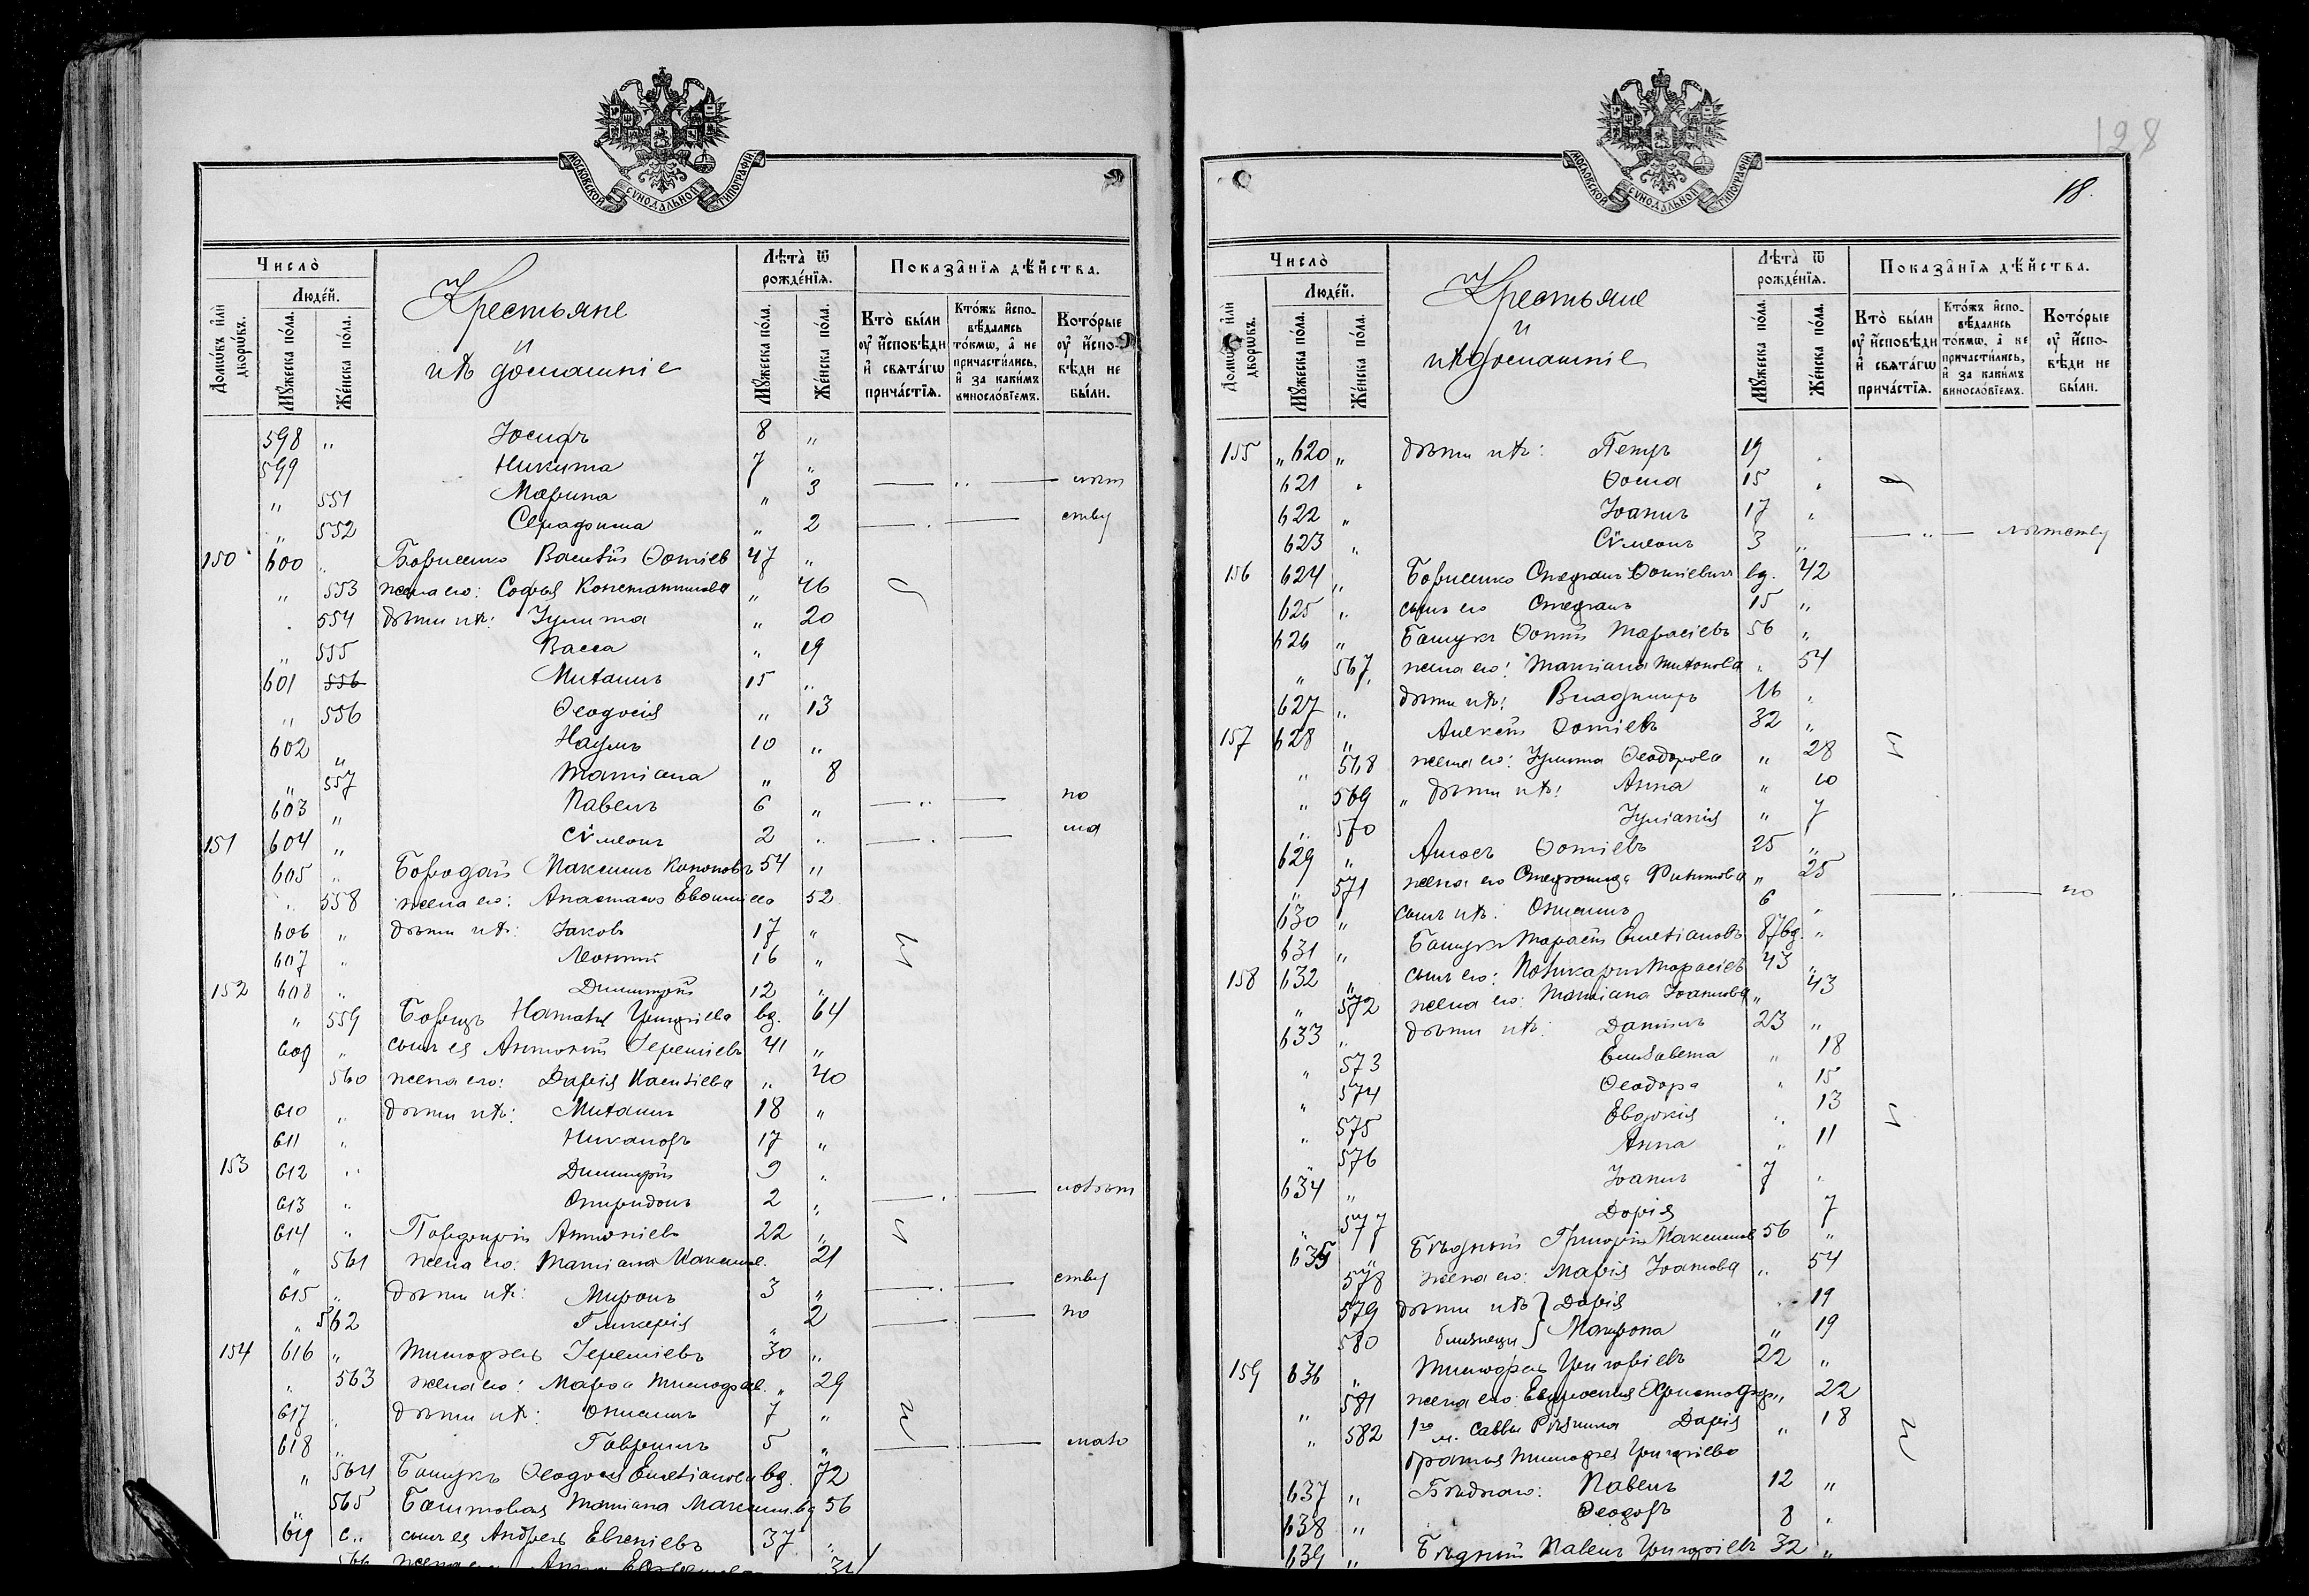 МОСКОВСКОЙ СѴНОДАЛЬНОЙ ТИПОГРАФІИ
Число̀
Людей.
Домѡвъ или дворѡвъ.
Мꙋжеска по́ла.
Же́нска по́ла.
Крестьяне
и
ихъ домашніе
Лѣта̀ ѿ рожде́нїѧ.
Мꙋжеска по́ла.
Же́нска по́ла.
Показа̑нїѧ дѣ́йства.
Кто̀ были оу҆ исповѣди и҆ свѧта́гѡ прича́стїѧ.
Кто́жъ и҆сповѣдались то́кмѡ, а҆ не причасти́лись, и҆ за каки́мъ винословїемъ.
Кото́рые оу҆ и҆сповѣди не были.
598 „ Іосифъ 8 „
599 Никита 7 „
„ 551 Марина „ 3 — „ — лѣт
„ 552 Серафима „ 2 — . — ству
150 600 „ Борисенко Василій Ѳотіев 47 „
„ 553 жена его: Софія Константинова „ 46
. 554 дѣти ихъ: Іулита „ 20
„ 555 Васса „ 19
601 556 Михаилъ 15 „
„ 556 Ѳеодосія „ 13
602 „ Наумъ 10 „
„ 557 Татіана „ 8
603 „ Павелъ 6 „ — „ — по
151 604 „ Сѵмеонъ 2 „ — . — ма
605 „ Бородай Максимъ Кононовъ 54 „
„ 558 жена его: Анастасія 52
606 „ дѣти ихъ: Іаковъ 17 „
607 „ Леонтій 16 „
152 608 „ Димитрій 12 „
„ 559 Борецъ Наталія Григоріева вд. 64
609 „ сынъ ея Антоній Іереміевъ 41 „
560 жена его: Дарія „ 40
610 „ дѣти ихъ: Михаилъ 18 „
611 „ Никаноръ 17 „
153 612 „ Димитрій 9 „
613 „ Спиридонъ 2 „ — . —
614 „ Порфирій Антоніевъ 22 „
„ 561 жена его: Татіана Максимов. 21
615 „ дѣти ихъ: Миронъ 3 „ — . — ству
„ 562 Гликерія „ 2 — . — по
154 616 „ Тимофей Іереміевъ 30 „
„ 563 жена его: Марѳа Тимофеев. „ 29
617 „ дѣти ихъ: Стефанъ 7 „
618 „ Гавріилъ 5 „ — . — мало
„ 564 Башукъ Ѳеодосія Емеліанова вд. 72
„ 565 Татіана Максим. вд 56
619 с„ сынъ ея Андрей Евгеніевъ 37 „
566 жена его Анна 34
128
18.
МОСКОВСКОЙ СѴНОДАЛЬНОЙ ТИПОГРАФІИ
Число̀
Людей.
Домѡвъ или дворѡвъ.
Мꙋжеска по́ла.
Же́нска по́ла.
Крестьяне
и
ихъ домашніе
Лѣта̀ ѿ рожде́нїѧ.
Мꙋжеска по́ла.
Же́нска по́ла.
Показа̑нїѧ дѣ́йства.
Кто̀ были оу҆ исповѣди и҆ свѧта́гѡ прича́стїѧ.
Кто́жъ и҆сповѣдались то́кмѡ, а҆ не причасти́лись, и҆ за каки́мъ винословїемъ.
Кото́рые оу҆ и҆сповѣди не были.
155 „ 620 „ дѣти ихъ: Петръ 19 .
621 „ Ѳома 15 „
622 „ Іоаннъ 17 „
623 „ Сѵмеонъ 3 „ — „ — лѣтству
156 624 „ Борисенко Стефанъ Ѳотіевичъ вд. 42
625 „ сынъ его Стефанъ 15 „
626 „ Башукъ Ѳотій Тарасіевъ 56 „
„ 567 жена его: Татіана „ 54
627 „ дѣти ихъ: Владиміръ 16 „
157 628 „ Алексій Ѳотіевъ 32 „
„ 568 жена его: Іулита Ѳеодорова „ 28
„ 569 „ дѣти ихъ: Анна „ 10
„ 570 Іуліанія „ 7
629 „ Амосъ Ѳотіевъ 25 „
„ 571 жена его Стефанида „ 25
630 „ сынъ ихъ: Стефанъ 6 „ — . — по
631 „ Башукъ Тарасій Емеліановъ 87 вд. „
158 632 „ сынъ его: Поликарпъ Тарасіевъ 43 „
„ 572 жена его: Татіана Іоаннова „ 43
633 „ дѣти ихъ: Даніилъ 23 „
„ 573 Елисавета „ 18
„ 574 Ѳеодора „ 15
„ 575 Евдокія „ 13
„ 576 Анна „ 11
634 „ Іоаннъ 7 „
„ 577 Дарія 7
635 „ Бѣдный Григорій Максимов 56 „
578 жена его: Марія Іоаннова „ 54
579 дѣти ихъ } Дарія „ 19
580 близнецы } Матрона „ 19
159 636 „ Тимофей Григоріевъ 22 „
„ 581 жена его: Евфросинія Христофор. „ 22
„ 582 1го м. Саввы Дарія „ 18
братья Тимофея Григоріева
637 „ Бѣднаго: Павелъ 12 „
638 „ Ѳеодоръ 8 „
639 „ Бѣдный Павелъ Григоріевъ 32 „